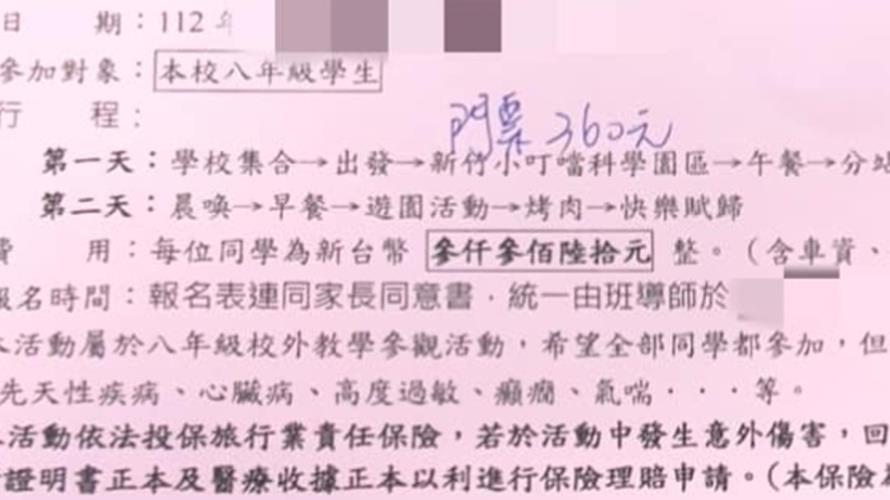 日 期：112年
參加對象：本校八年級學生
行 程：
門票 360元
第一天：學校集合→出發→新竹小叮噹科學園區→午餐→分站
第二天：晨喚→早餐→遊園活動→烤肉→快樂賦歸
費 用：每位同學為新台幣 參仟參佰陸拾元 整。（含車資、
報名時間：報名表連同家長同意書，統一由班導師於
本活動屬於八年級校外教學參觀活動，希望全部同學都參加，但
先天性疾病、心臟病、高度過敏、癲癇、氣喘．．．等。
本活動依法投保旅行業責任保險，若於活動中發生意外傷害，回
證明書正本及醫療收據正本以利進行保險理賠申請。（本保險為